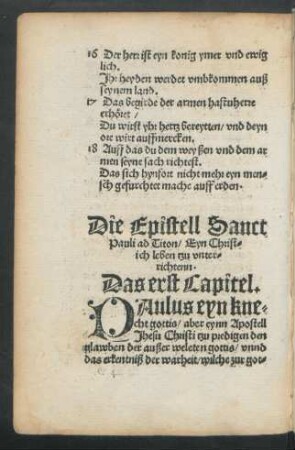 16 Der herr ist eyn konig ymer vnd ewig
lich.
Ihr heyden werdet vmbkommen auß
seynem land.
17 Das begirde der armen hastu herre
erhöret /
Du wirst yhr hertz bereyten / vnd deyn
ore wirt auffmercken.
18 Auff das du dem weyßen vnd dem ar
men seyne sach richtest.
Das sich hynfort nicht mehr eyn men-
sch gefurchtet mache auff erden.
Die Epistell Sanct
Pauli ad Titon / Eyn Christ-
ich leben tzu vnter-
richtenn.
Das erst Capitel.
PAulus eyn kne-
cht gottis / aber eynn Apostell
Jhesu Christi tzu predigen den
glawben der außer weleten gottis / vnnd
das erkentniß der warheit / wilche zur got-